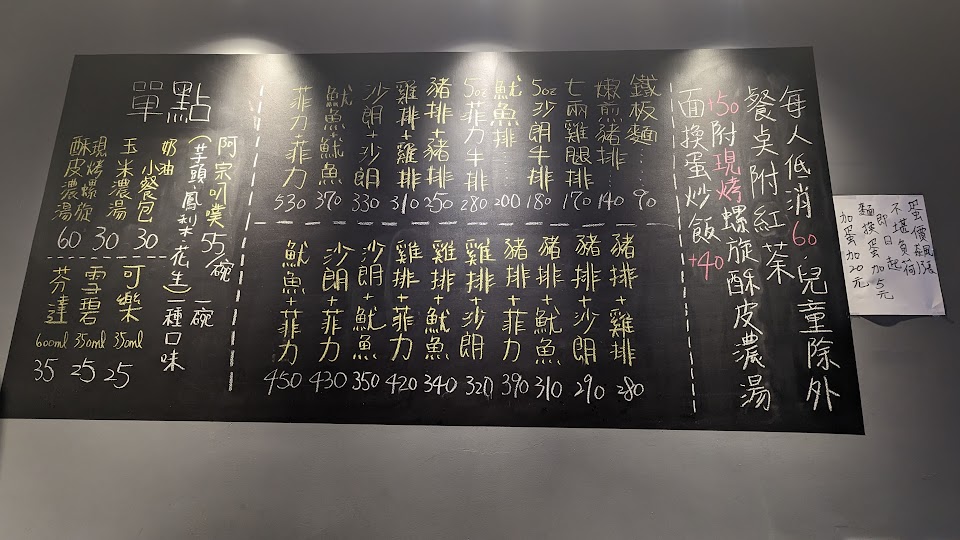 每人低消60.兒童除外
餐桌附紅茶
+50附現烤螺旋酥皮濃湯
面換蛋炒飯+40
鐵板麵……90
嫩煎豬排…140
七兩雞腿排170
5oz沙朗牛排180
魷魚排200
5oz菲力牛排280
豬排+豬排250
雞排+雞排310
沙朗+沙朗330
魷魚+魷魚370
菲力+菲力530
豬排+雞排280
豬排+沙朗290
豬排+魷魚310
豬排+菲力390
雞排+沙朗320
雞排+魷魚340
雞排+菲力420
沙朗+魷魚350
沙朗+菲力430
魷魚+菲力450
單點
阿宗叭噗55/碗
(芋頭.鳳梨.花生)一碗一種口味
奶油小餐包30
玉米濃湯30
現烤螺旋酥皮濃湯60
可樂350ml25
雪碧350ml25
芬達600ml35
蛋價飆漲
不堪負荷
即日起
麵換蛋加5元
加蛋加20元